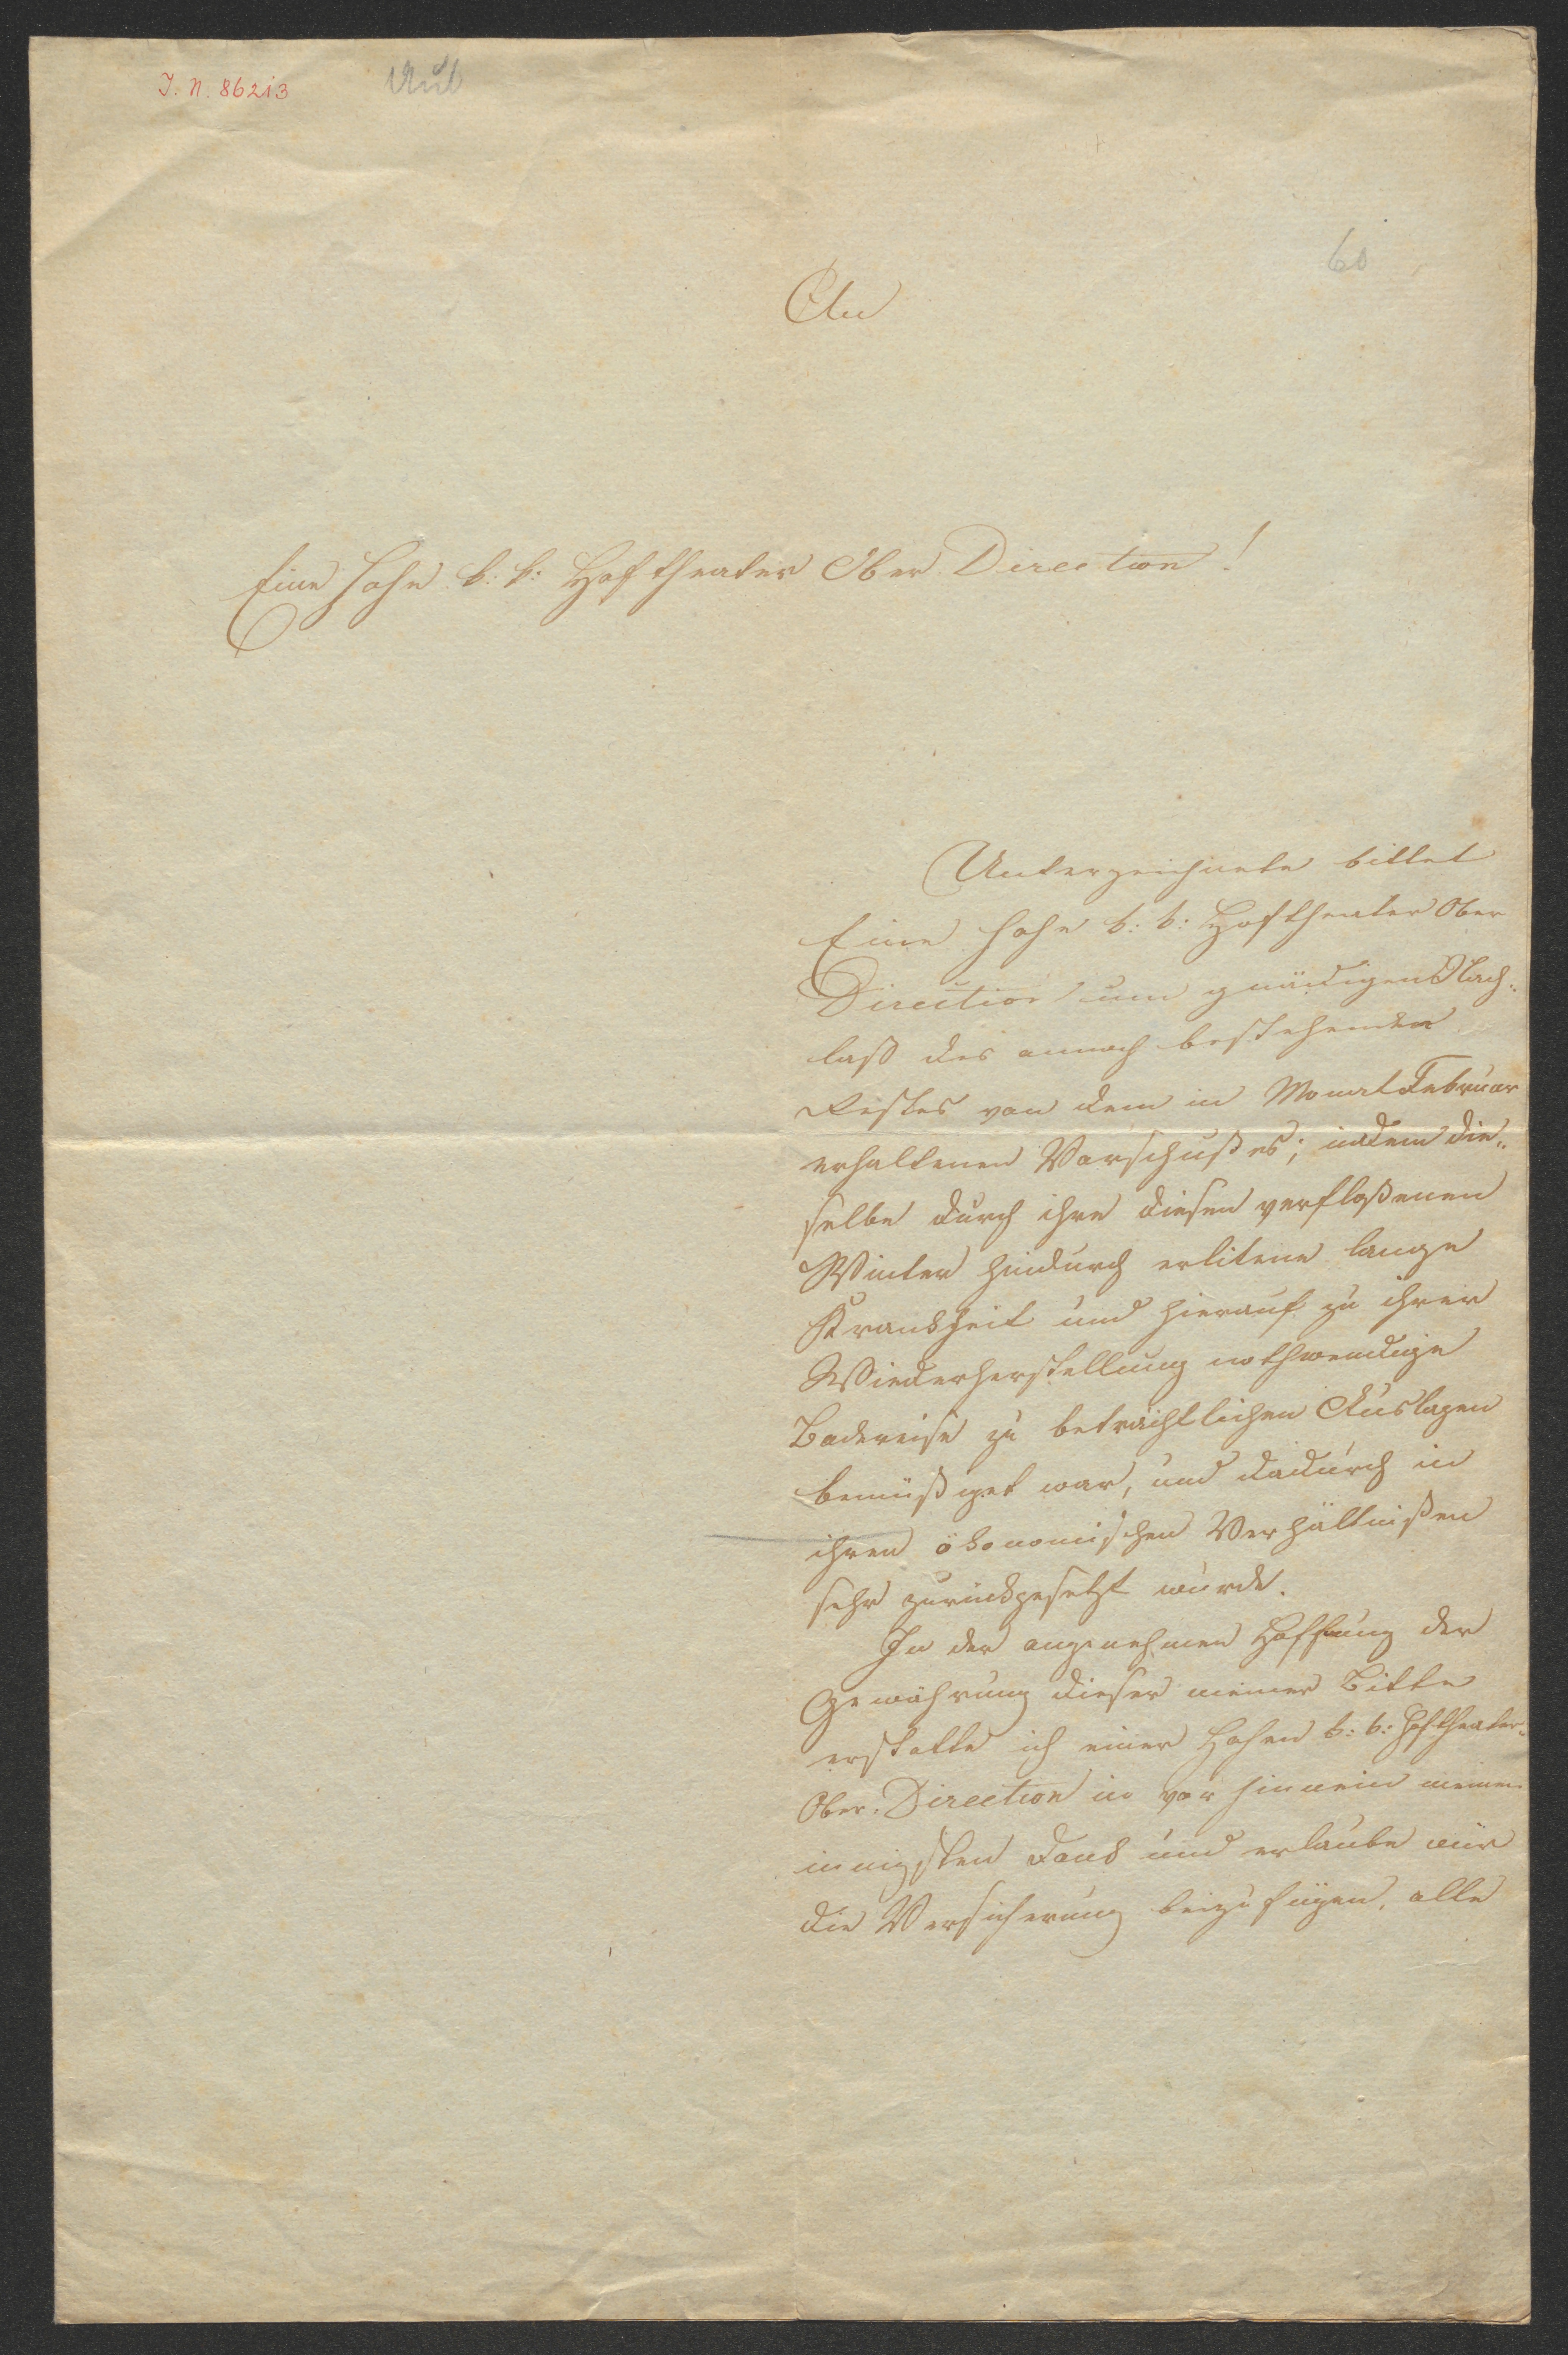 J. N. 86213
60
An
Eine hohe k: k: Hoftheater Ober Direction!
Unterzeichnete bittet
Eine hohe k: k: Hoftheater Ober
Direction um gnädigen Nach„
laß des annoch bestehenden
Restes von dem in Monat Februar
erhaltenen Vorschußes; indem die„
selbe durch ihre diesen verfloßenen
Winter hindurch erlitene lange
Krankheit und hierauf zu ihrer
Wiederherstellung nothwendige
Badereise zu beträchtlichen Auslagen
bemüßiget war, und dadurch in
ihren ökonomischen Verhältnißen
sehr zurückgesetzt wurde.
In der angenehmen Hoffnung der
Gewährung dieser meiner Bitte
erstatte ich einer hohen k: k: Hoftheater„
Ober-Direction im vor hinnein meinen
innigsten Dank und erlaube mir
die Versicherung beizufügen, alle